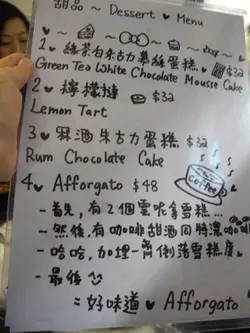 甜品 ~ Dessert ♥ Menu
1♥ 綠茶白朱古力慕絲蛋糕
Green Tea White Chocolate Mousse Cake
2♥ 檸檬撻 $32
Lemon Tart
3♥ 冧酒朱古力蛋糕 $32
Rum Chocolate Cake
coffee
4♥ Afforgato $48
- 首先,有2個雲呢拿雪糕...
- 然後,有咖啡甜酒同特濃咖啡
- 哈哈,加埋一齊倒落雪糕度。
- 最後
= 好味道♥ Afforgato